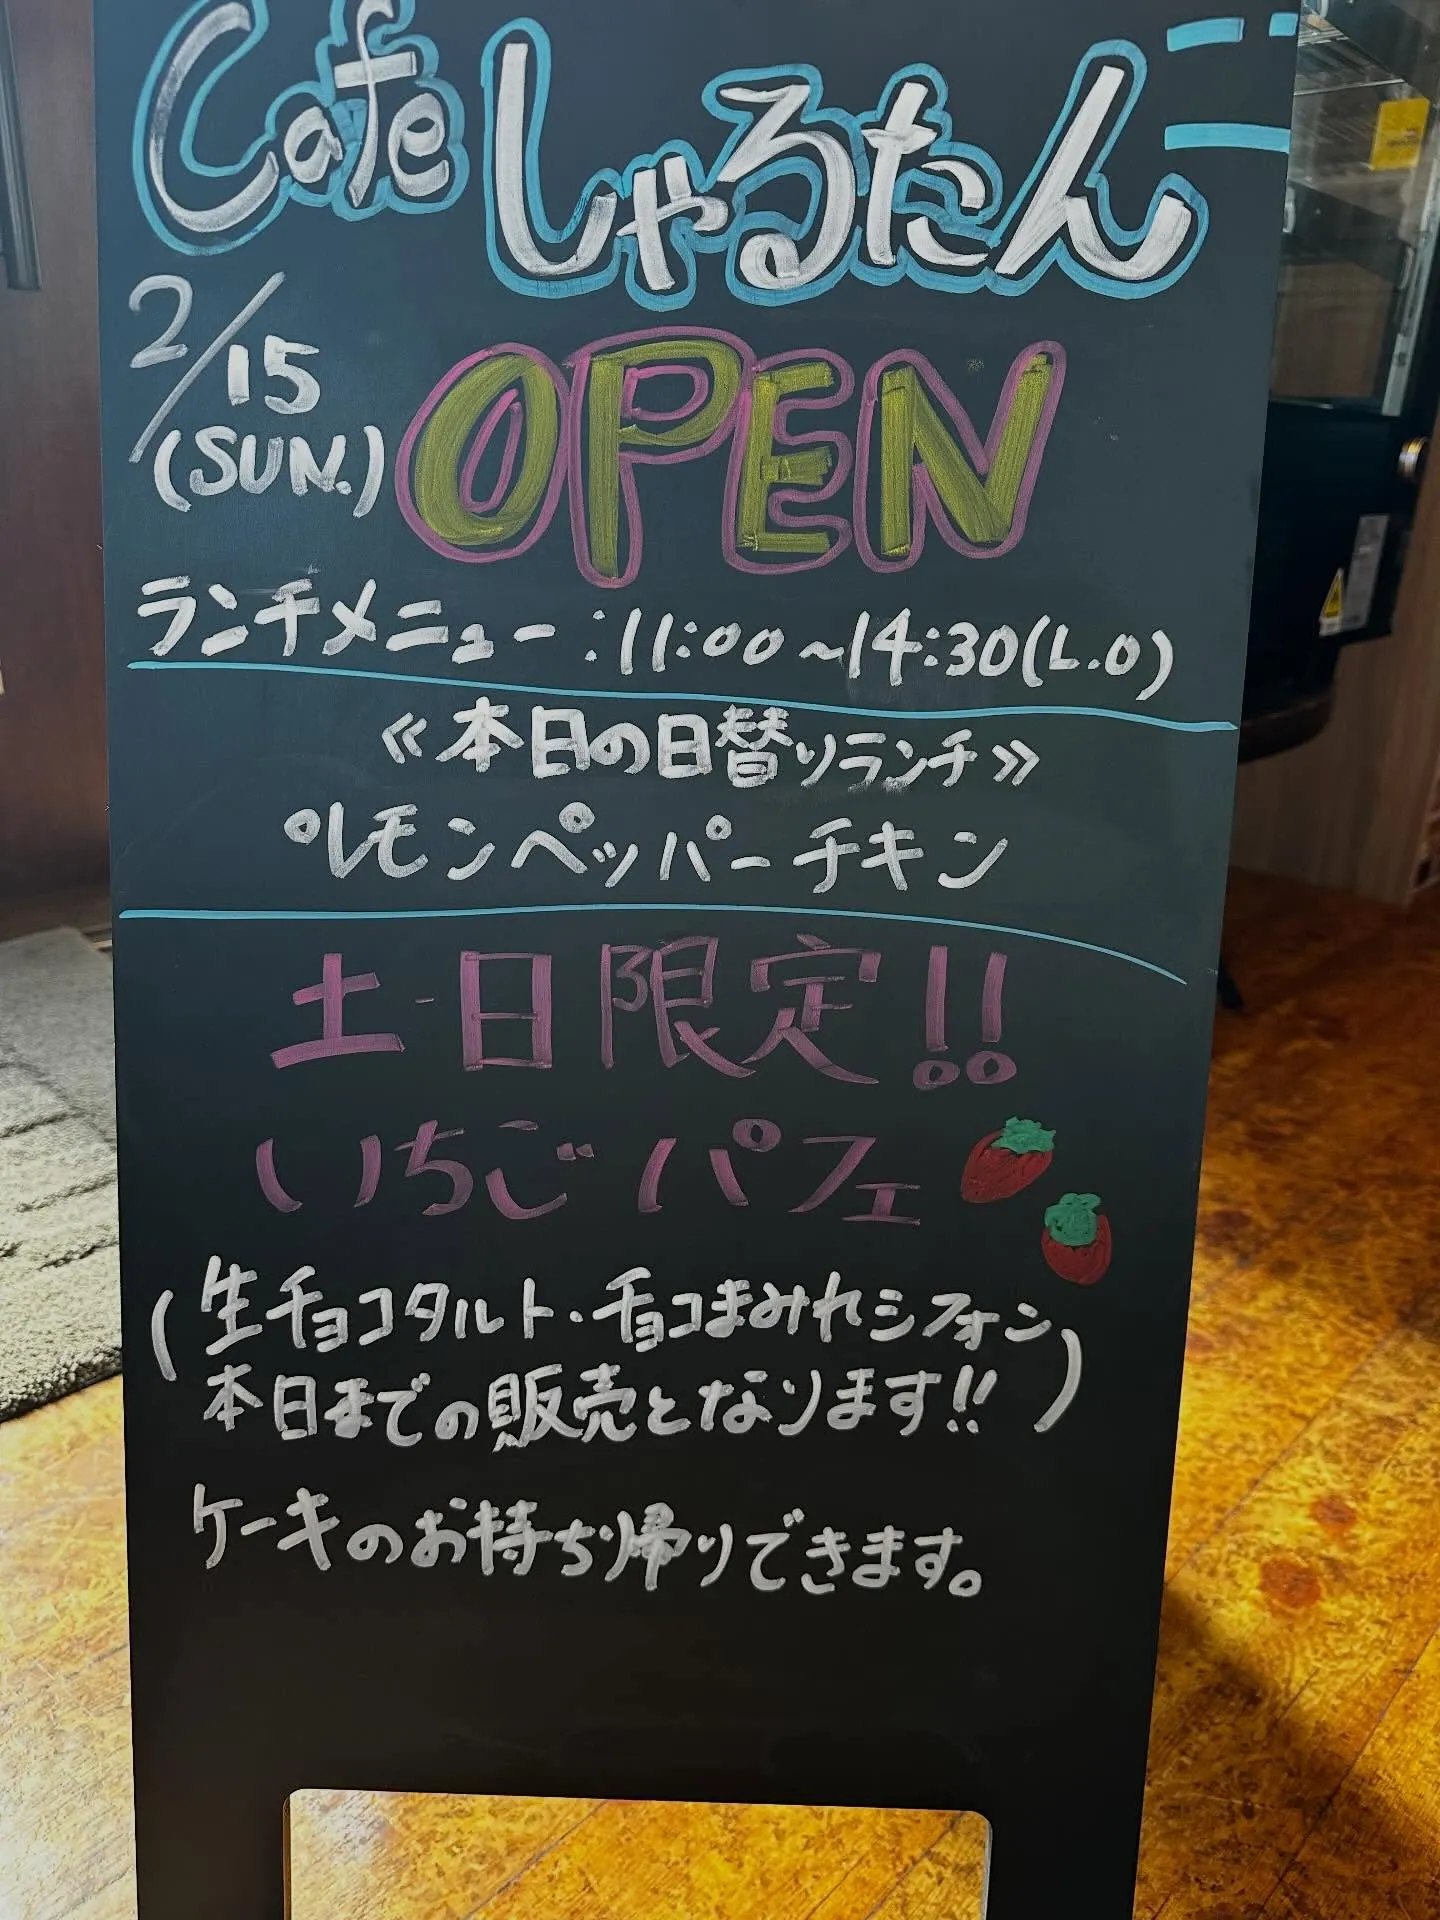 Cafe しゃるたん
2/15
(SUN.)
OPEN
ランチメニュー:11:00~14:30(L.O)
《本日の日替りランチ》
°レモンペッパーチキン
土・日限定!!
いちごパフェ
(生チョコタルト・チョコまみれシフォン
本日までの販売となります!!)
ケーキのお持ち帰りできます。